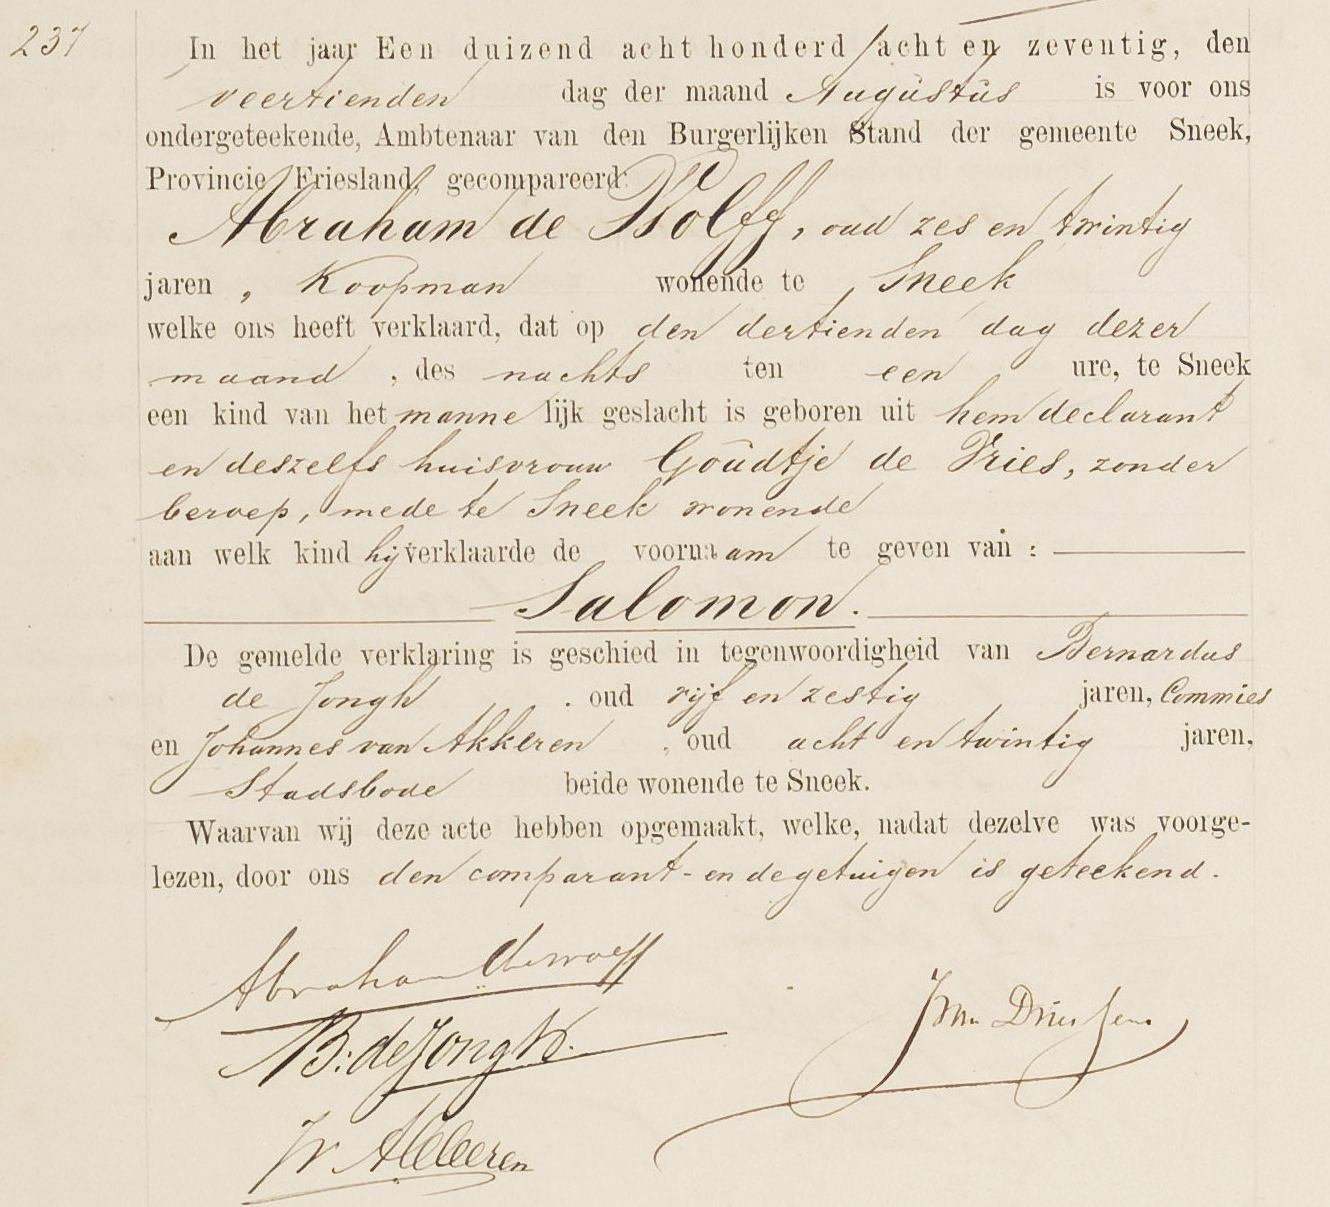 237
In het jaar Een duizend acht honderd acht en zeventig, den
veertienden dag der maand Augustus is voor ons
ondergeteekende, Ambtenaar van den Burgerlijken Stand der gemeente Sneek,
Provincie Friesland, gecompareerd:
Abraham de Wolff, oud zes en twintig
jaren, Koopman wonende te Sneek
welke ons heeft verklaard, dat op den dertienden dag dezer
maand, des nachts ten een ure, te Sneek
een kind van het mannelijk geslacht is geboren uit hem declarant
en deszelfs huisvrouw Goudtje de Vries, zonder
beroep, mede te Sneek wonende
aan welk kind hij verklaarde de voornaam te geven van:
Salomon.
De gemelde verklaring is geschied in tegenwoordigheid van Bernardus
de Jongh, oud vijf en zestig jaren, Commies
en Johannes van Akkeren, oud acht en twintig jaren,
Stadsbode beide wonende te Sneek.
Waarvan wij deze acte hebben opgemaakt, welke, nadat dezelve was voorge-
lezen, door ons den comparant en de getuigen is geteekend.
Abraham de wolff
B: de Jongh.
JV Akkeren